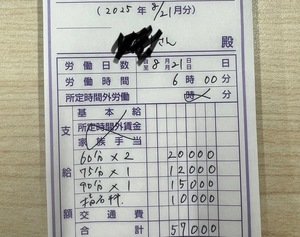 (2025年8/21月分)
さん 殿
労働日数 自 至 8月21日 日
労働時間 6時00分
所定時間外労働 時 分
基本給
所定時間外賃金
家族手当
60分×2 20000
75分×1 12000
90分×1 15000
指名料 10000
交通費
合計 57000
支給額